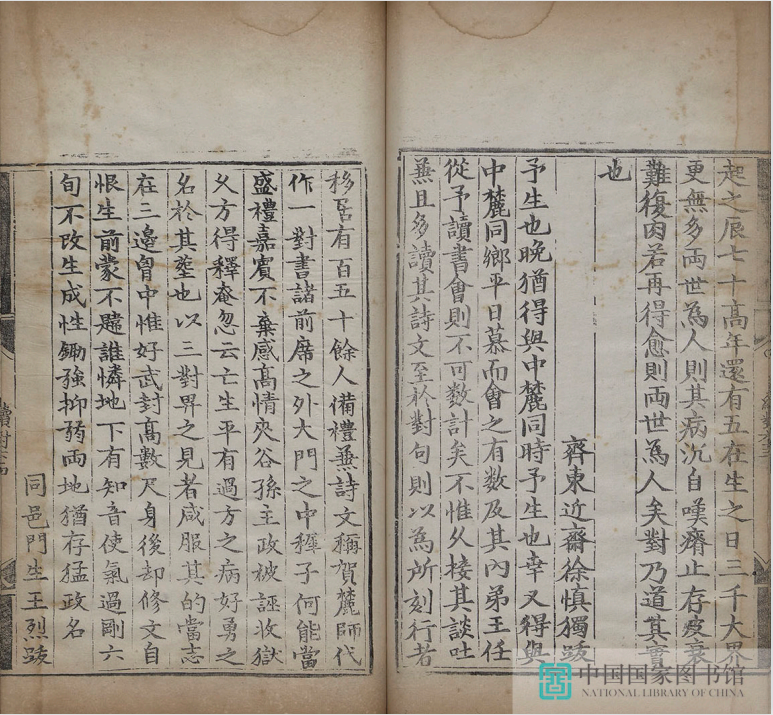 起之辰七十高年還有五在生之日三千大界
更無多兩世為人則其病沉自嘆瘠止存皮衰
難復因若再得愈則兩世為人矣對乃道其實
也
齊東近齋徐慎獨跋
予生也晚猶得與中麓同時予生也幸又得與
中麓同鄉平日慕而會之有數及其內弟王任
從予讀書會則不可数計矣不惟久接其談吐
蕪且多讀其詩文至於對句則以為所刻行者
續對卷三
移居有百五十餘人備禮蕪詩文稱賀麓師代
作一對書諸前席之外大門之中稺子何能當
盛禮嘉賓不棄感高情夾谷孫主政被誣收獄
久方得釋菴忽云亡生平有過方之病好勇之
名於其塟也以三對畀之見者咸服其的當志
在三邊胷中惟好武封高數尺身後却修文自
恨生前蒙不韙誰憐地下有知音使氣過剛六
旬不改生成性鋤強抑弱両地猶存猛政名
同邑門生王烈跋
續對卷四
中国国家图书馆
NATIONAL LIBRARY OF CHINA